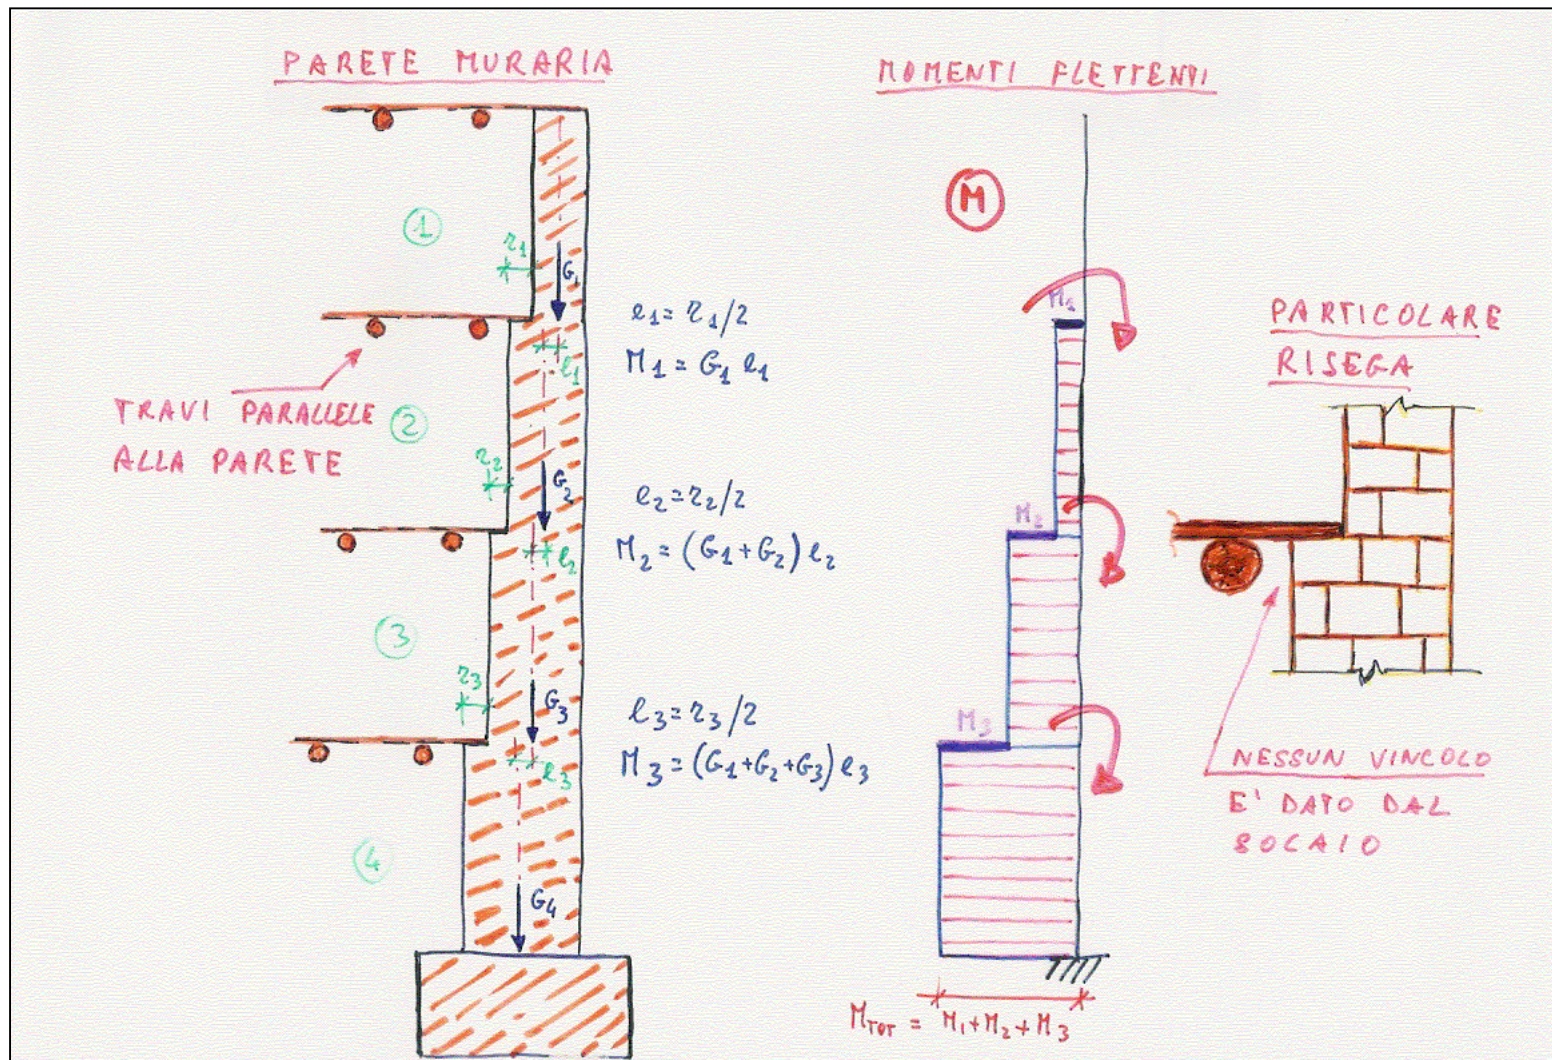 PARETE MURARIA
1
r1
G1
e1
e1 = r1/2
M1 = G1 e1
TRAVI PARALLELE
ALLA PARETE
2
r2
G2
e2
e2 = r2/2
M2 = (G1+G2) e2
3
r3
G3
e3
e3 = r3/2
M3 = (G1+G2+G3) e3
4
G4
MOMENTI FLETTENTI
M
M1
M2
M3
MTOT = M1+M2+M3
PARTICOLARE
RISEGA
NESSUN VINCOLO
E' DATO DAL
SOLAIO